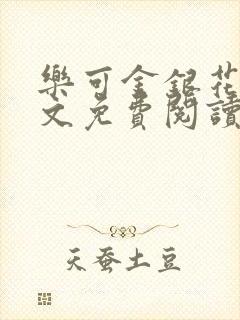 樂可金銀花
文免費閱讀
天蚕土豆